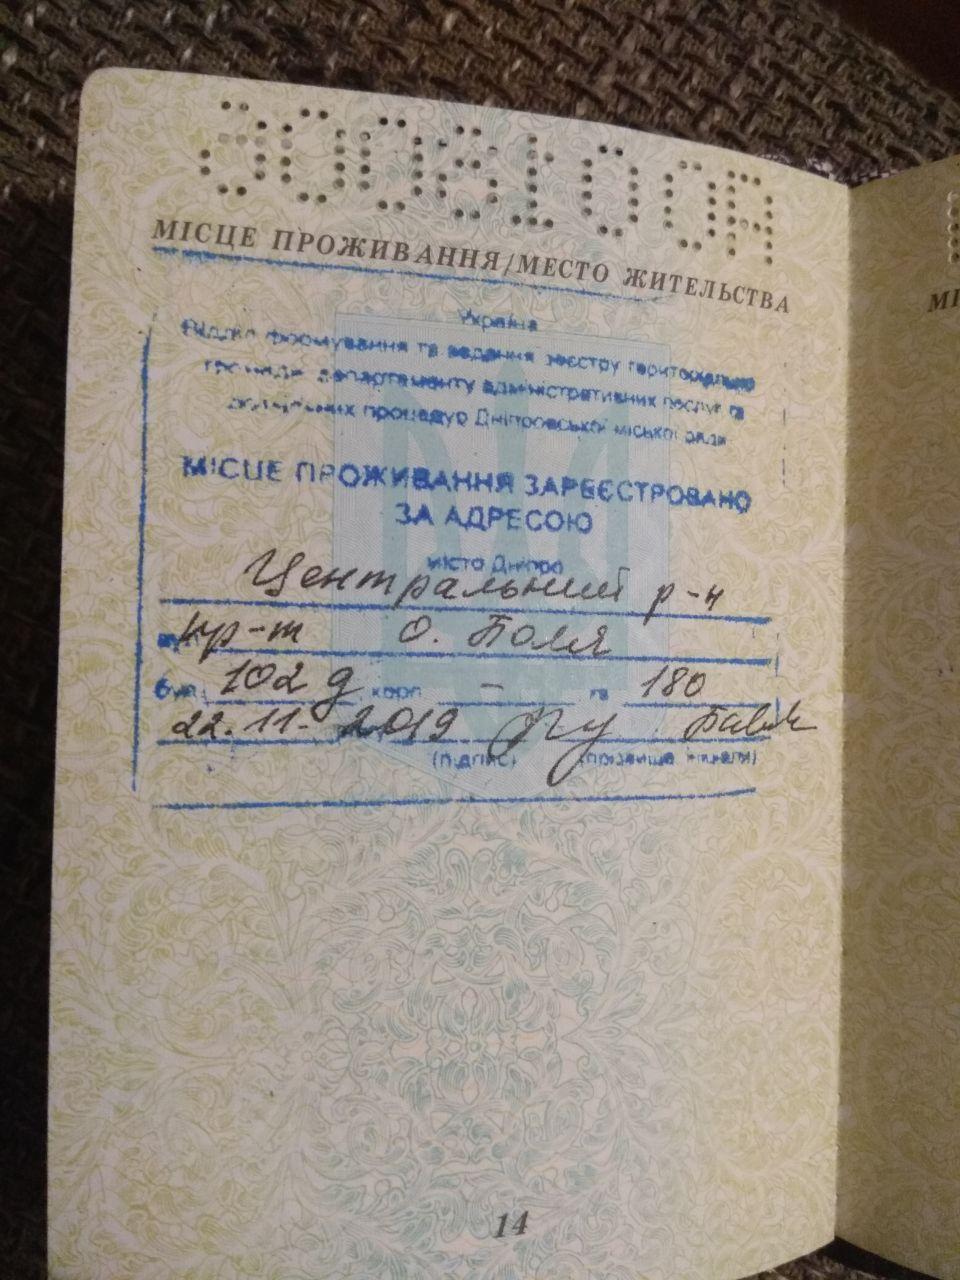 МІСЦЕ ПРОЖИВАННЯ/МЕСТО ЖИТЕЛЬСТВА
Україна
Відділ формування та ведення реєстру територіальної
громади департаменту адміністративних послуг та
дозвільних процедур Дніпровської міської ради
МІСЦЕ ПРОЖИВАННЯ ЗАРЕЄСТРОВАНО
ЗА АДРЕСОЮ
місто Дніпро
Центральний р-н
пр-т О. Поля
буд. 102 д, корп. - кв 180
22.11.2019
(підпис) (прізвище, ініціали)
14
МІ